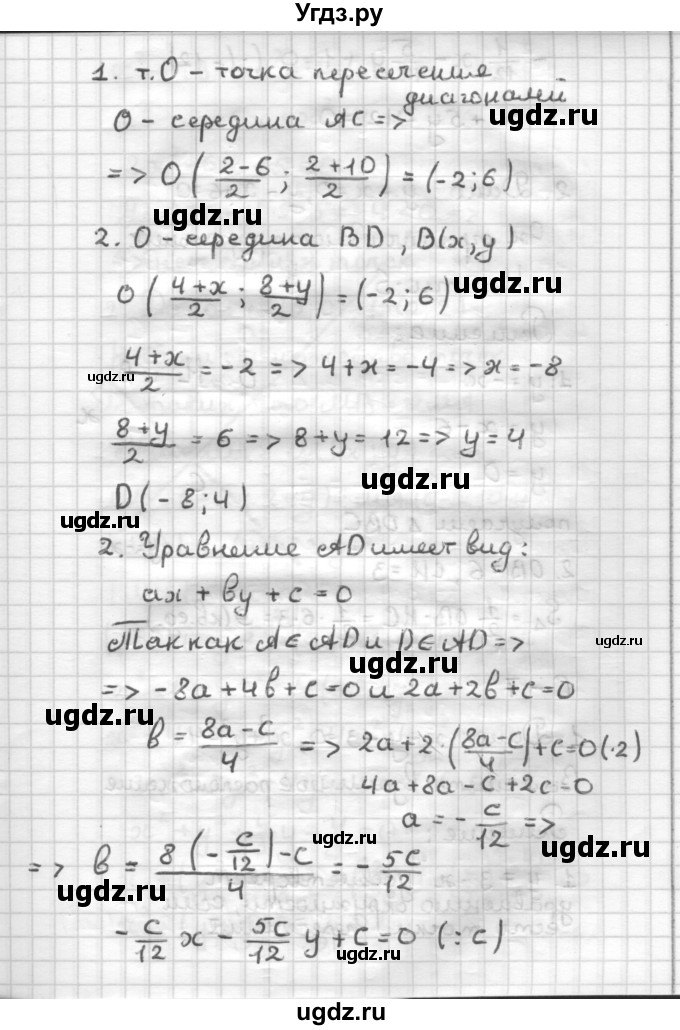 Угдз.ру
1. т.О – точка пересечение
диагоналей
О – середина АС =>
ugdz.ru
=> О( (2-6)/2 ; (2+10)/2 ) = (-2;6)
ugdz.ru
ugdz.ru
2. О – середина BD, D(x,y)
О( (4+x)/2 ; (8+y)/2 ) = (-2;6)
ugdz.ru
(4+x)/2 = -2 => 4+x = -4 => x = -8
ugdz.ru
(8+y)/2 = 6 => 8+y = 12 => y = 4
ugdz.ru
D(-8;4)
ugdz.ru
2. Уравнение AD имеет вид:
ax + by + c = 0
Так как A ∈ AD и D ∈ AD =>
ugdz.ru
ugdz.ru
=> -8a+4b+c=0 и 2a+2b+c=0
ugdz.ru
b = (8a-c)/4 => 2a+2·((8a-c)/4)+c=0(·2)
ugdz.ru
4a+8a-c+2c=0
a = -c/12 =>
ugdz.ru
ugdz.ru
=> b = (8(-c/12)-c)/4 = -5c/12
ugdz.ru
-c/12 x - 5c/12 y + c = 0 (:c)
ugdz.ru
ugdz.ru
ugdz.ru